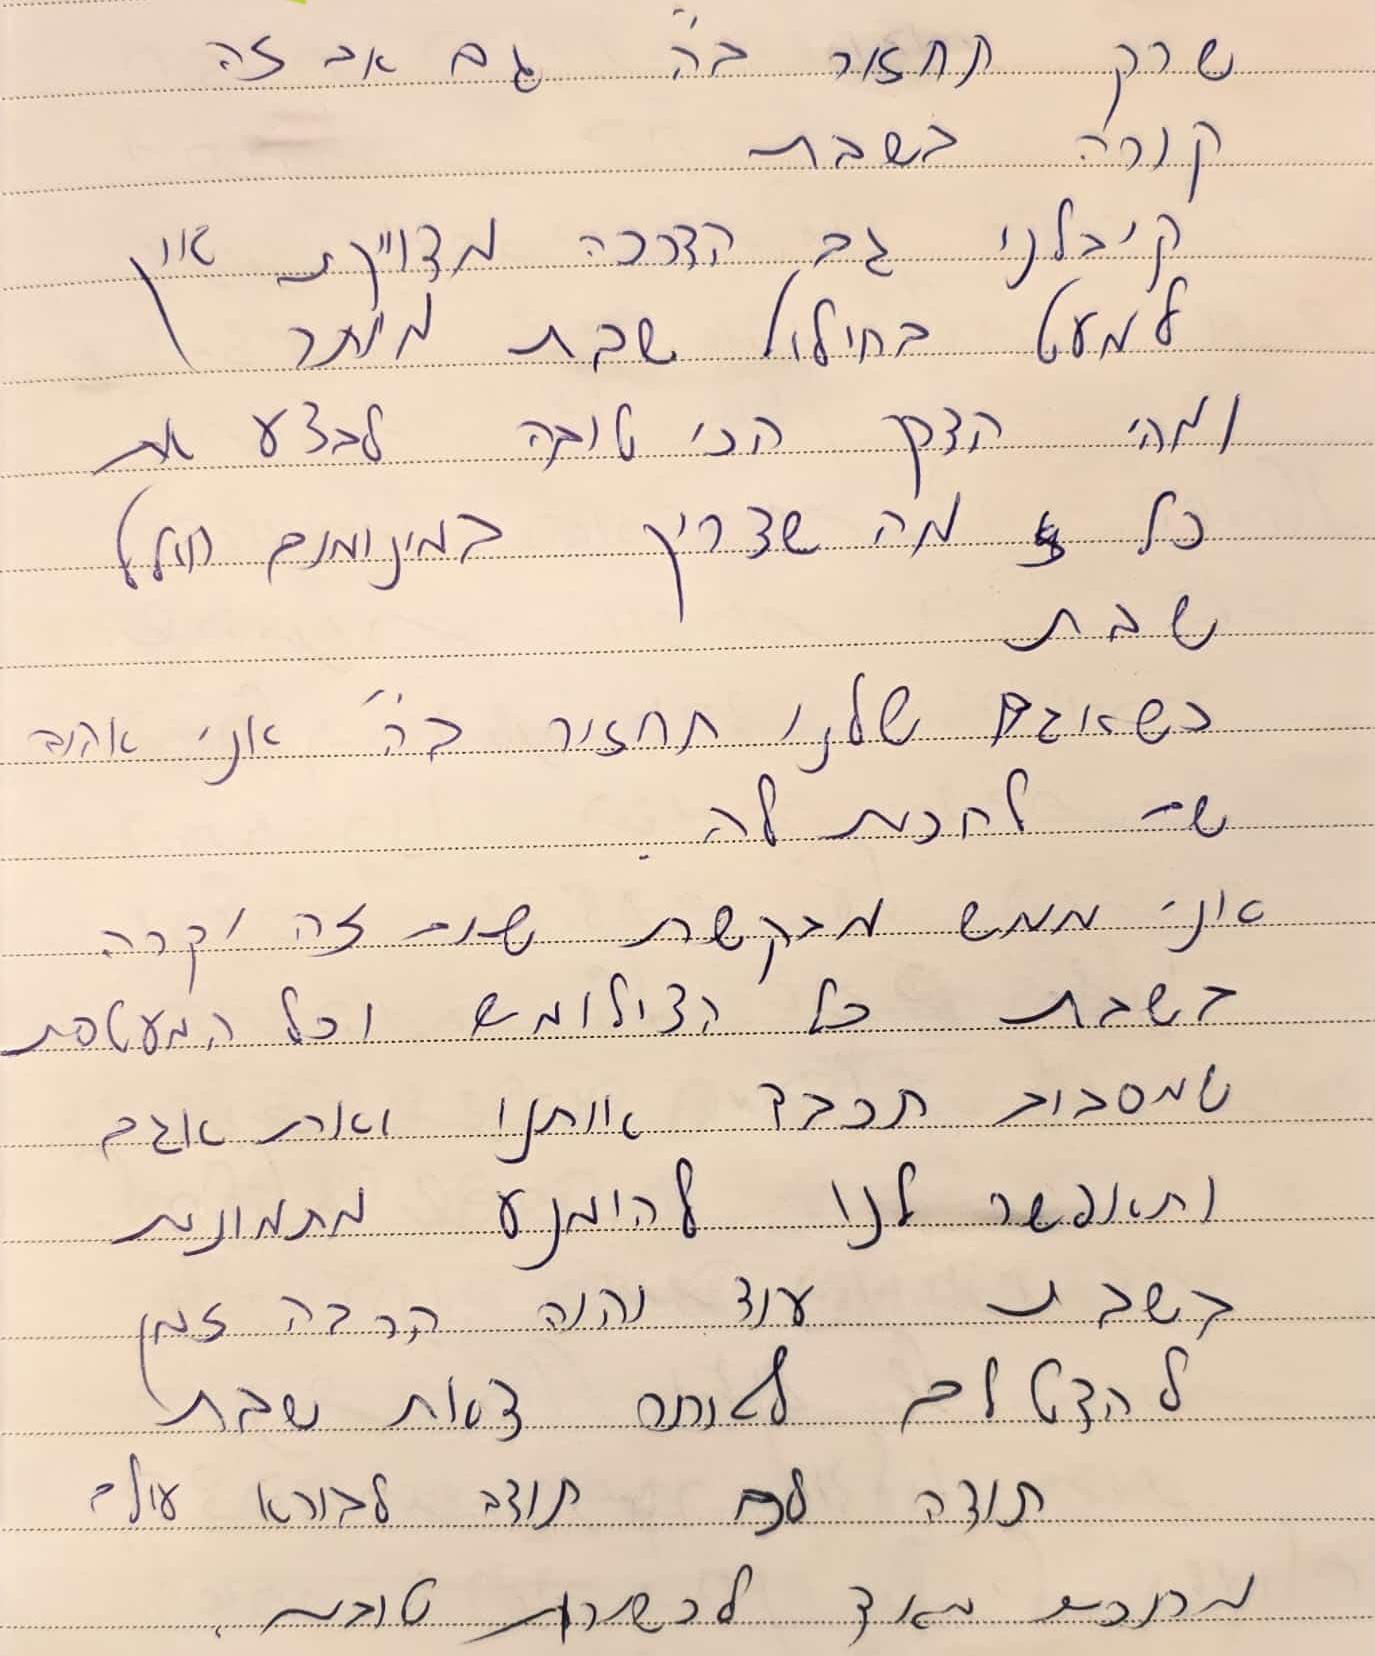 שרק תחזור ב"ה גם אם זה
קורה בשבת
קיבלנו גם הדרכה מדוייקת איך
למעט בחילול שבת מיותר
ומהי הדרך הכי טובה לבצע את
כל מה שצריך במינימום חילול
שבת
כשאגם שלנו תחזור ב"ה אני אהיה
שם לחכות לה.
אני ממש מבקשת שאם זה יקרה
בשבת כל הצילומים וכל המעטפת
שמסביב תכבד אותנו ואת אגם
ותאפשר לנו להימנע מתמונות
בשבת עוד יהיה הרבה זמן
להצטלם לאחר צאת שבת
תודה לכם תודה לבורא עולם
מחכים מאוד לבשורות טובות.